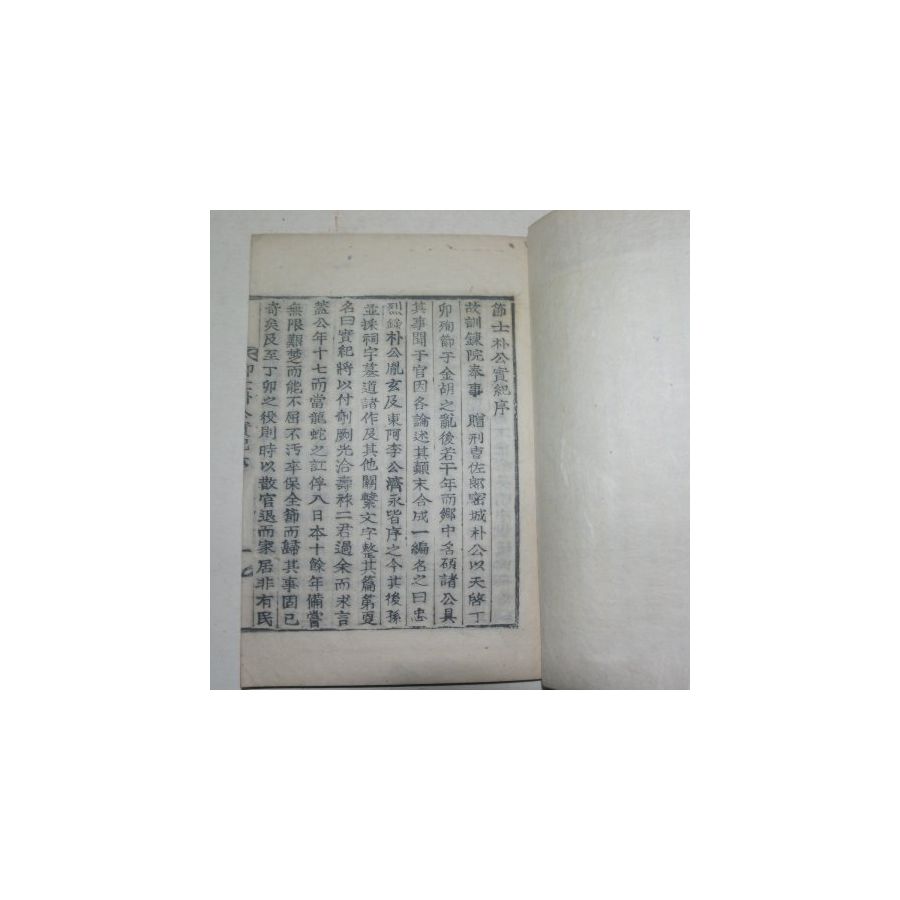 節士朴公實紀序
故訓鍊院奉事　贈刑曹佐郎密城朴公以天啓丁
卯殉節于金胡之亂後若干年而鄉中名碩諸公具
其事聞于官因各論述其顛末合成一編名之曰忠
烈錄朴公胤玄及東阿李公濟永皆序之今其後孫
並採祠宇墓道諸作及其他關繫文字整其篇第更
名曰實紀將以付剞劂光洽壽祿二君過余而求言
蓋公年十七而當龍蛇之訌俘入日本十餘年備嘗
無限艱楚而能不屈不汚卒保全節而歸其事固已
奇矣及至丁卯之役則時以散官退而家居非有民